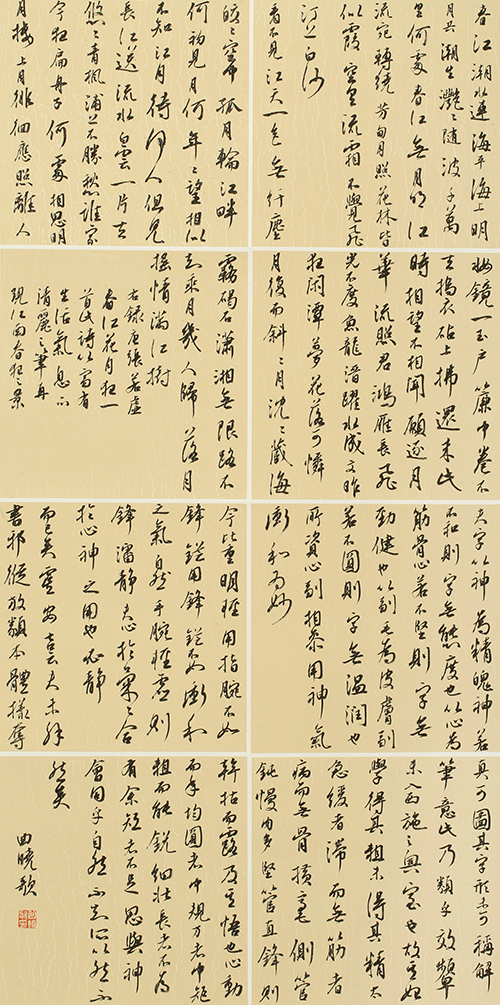 春江潮水連海平海上明
月共潮生灩〻隨波千萬
里何處春江無月明江
流宛轉繞芳甸月照花林皆
似霰空里流霜不覺飛
汀上白沙
看不見江天一色無纖塵
皎〻空中孤月輪江畔
何初見月何年〻望相似
不知江月待何人但見
長江送流水白雲一片去
悠〻青楓浦上不勝愁誰家
今夜扁舟子何處相思明
月樓上月徘徊應照離人
妝鏡臺玉戶簾中卷不
去搗衣砧上拂還來此
時相望不相聞願逐月
華流照君鴻雁長飛
光不度魚龍潛躍水成文昨
夜閑潭夢花落可憐
月後而斜〻月沈〻藏海
霧碣石瀟湘無限路不
知乘月幾人歸落月
搖情滿江樹
右錄唐張若虛
春江花月夜一
首此詩以富有
生活氣息而
清麗之筆再
現江南春夜之景
夫字以神為精魄神若
不和則字無態度也以心為
筋骨心若不堅則字無
勁健也以副毛為皮膚副
若不圓則字無溫潤也
所資心副相參用神氣
沖和為妙
今比重明輕用指腕不如
鋒鋩用鋒鋩不如沖和
之氣自然手腕輕虛則
鋒靜夫心於氣〻合
於心神之用也必靜
而已矣虞安吉云夫未解
書從放類本體樣奪
真可圖其字形未可稱解
筆意此乃類乎效顰
未入西施之奧室也故其始
學得其粗未得其精太
急緩者滯而無筋者
病而無骨橫毫側管
鈍慢肉多豎管直鋒則
乾枯而露及其悟也心動
而手均圓者中規方者中矩
粗而能銳細壯長者不為
有餘短者不足思與神
會同乎自然不知所以然而
然矣
曲曉歌